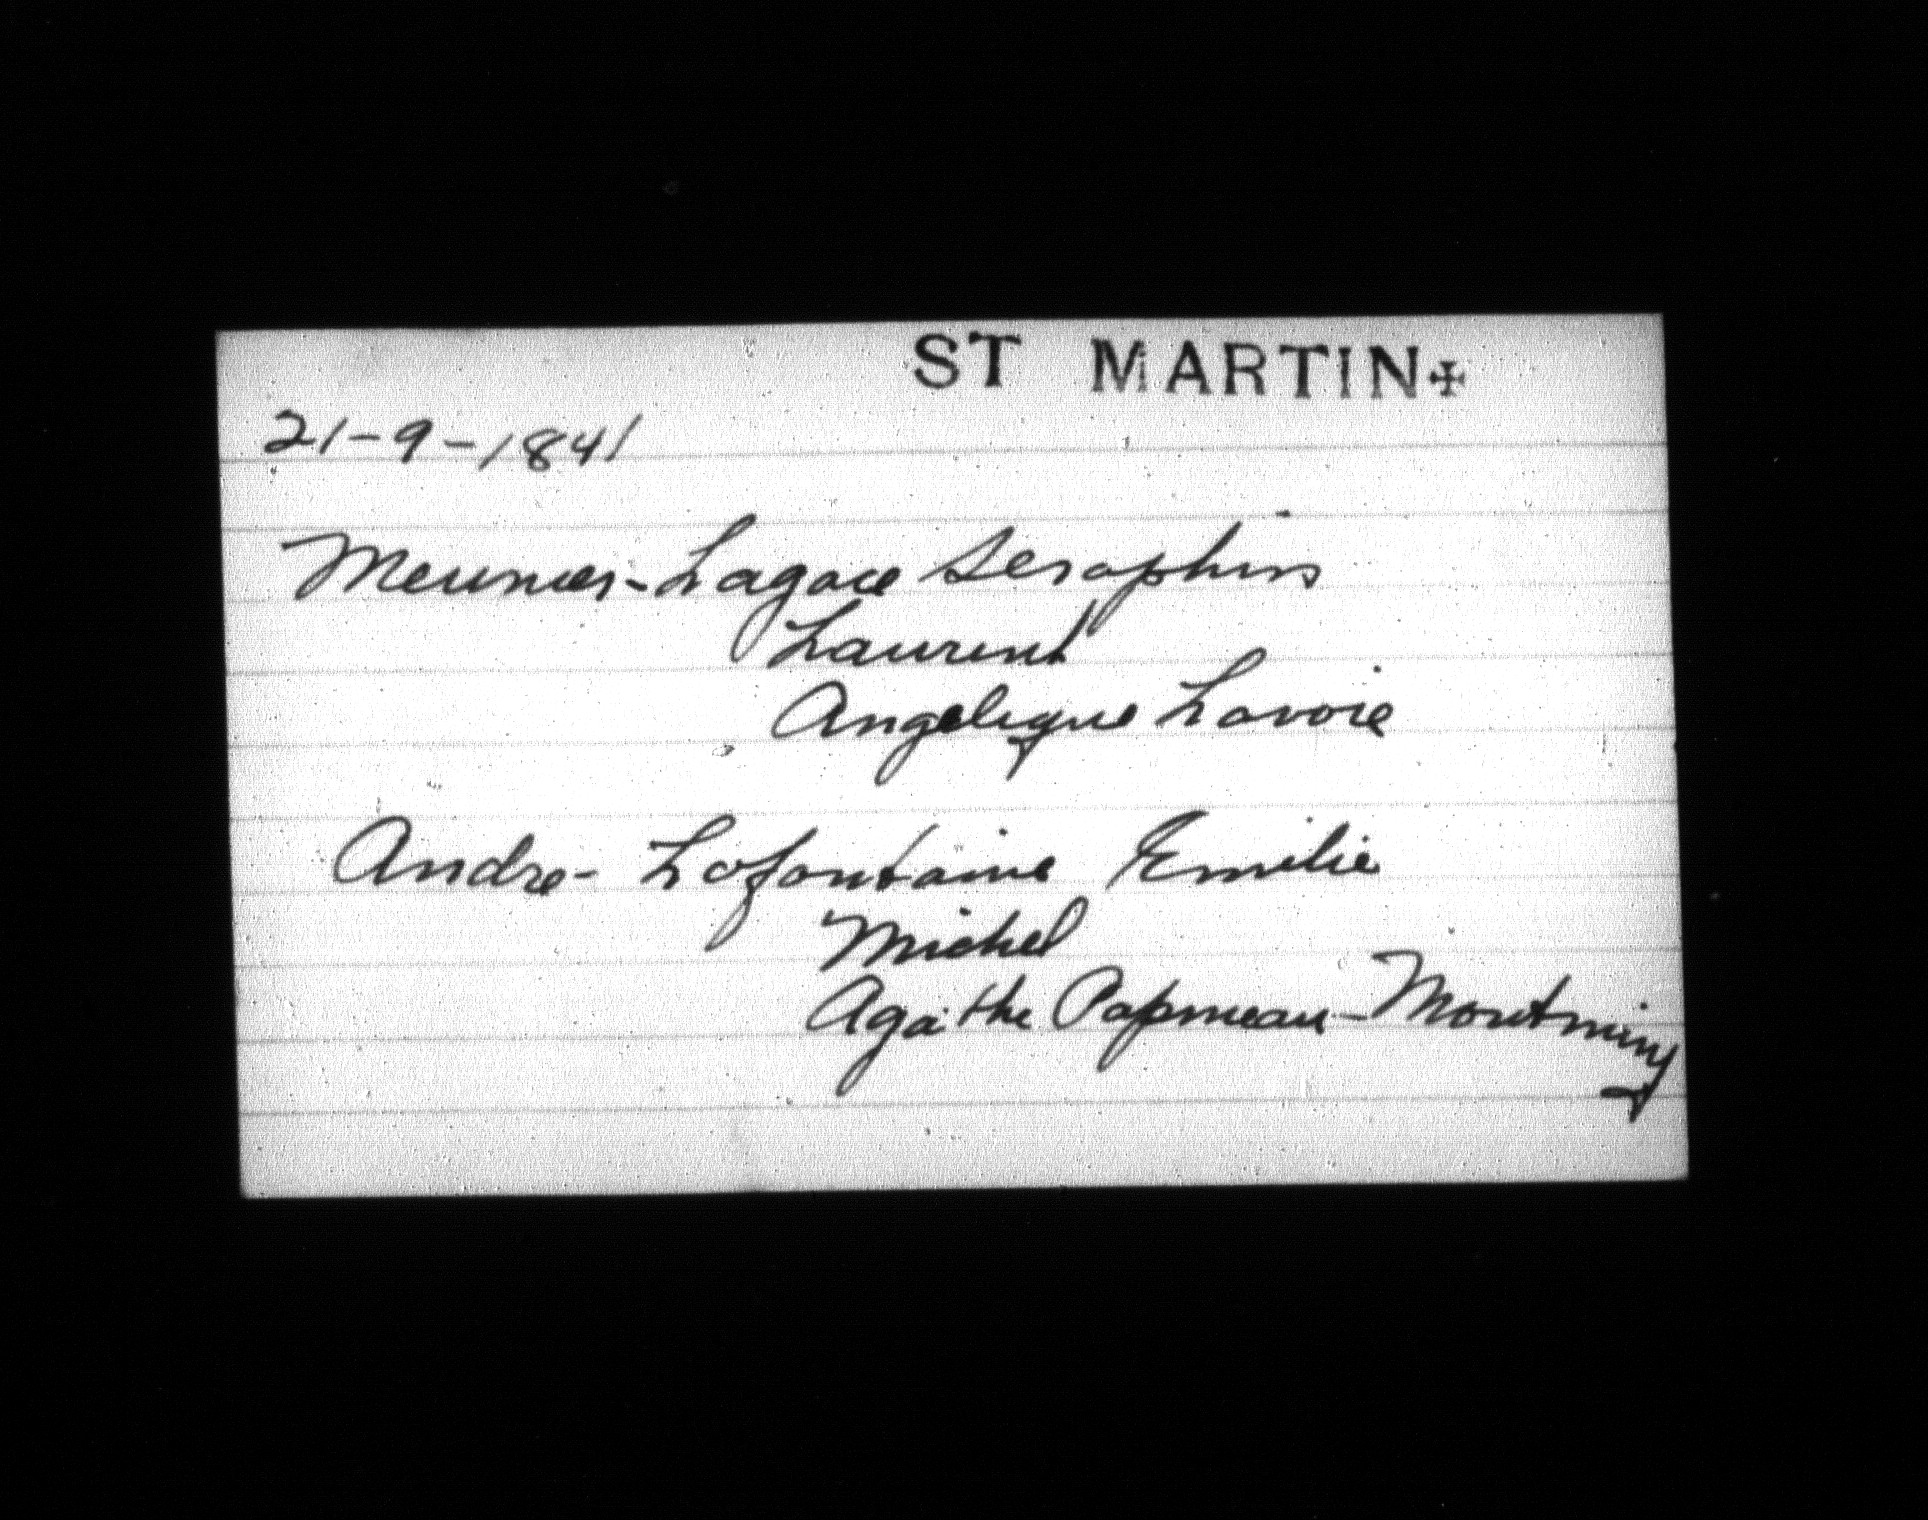 ST MARTIN✠
21-9-1841
Meunier-Lagace Seraphin
Laurent
Angelique Lavoie
Andre- Lafontaine Emilie
Michel
Agathe Papineau-Montminy